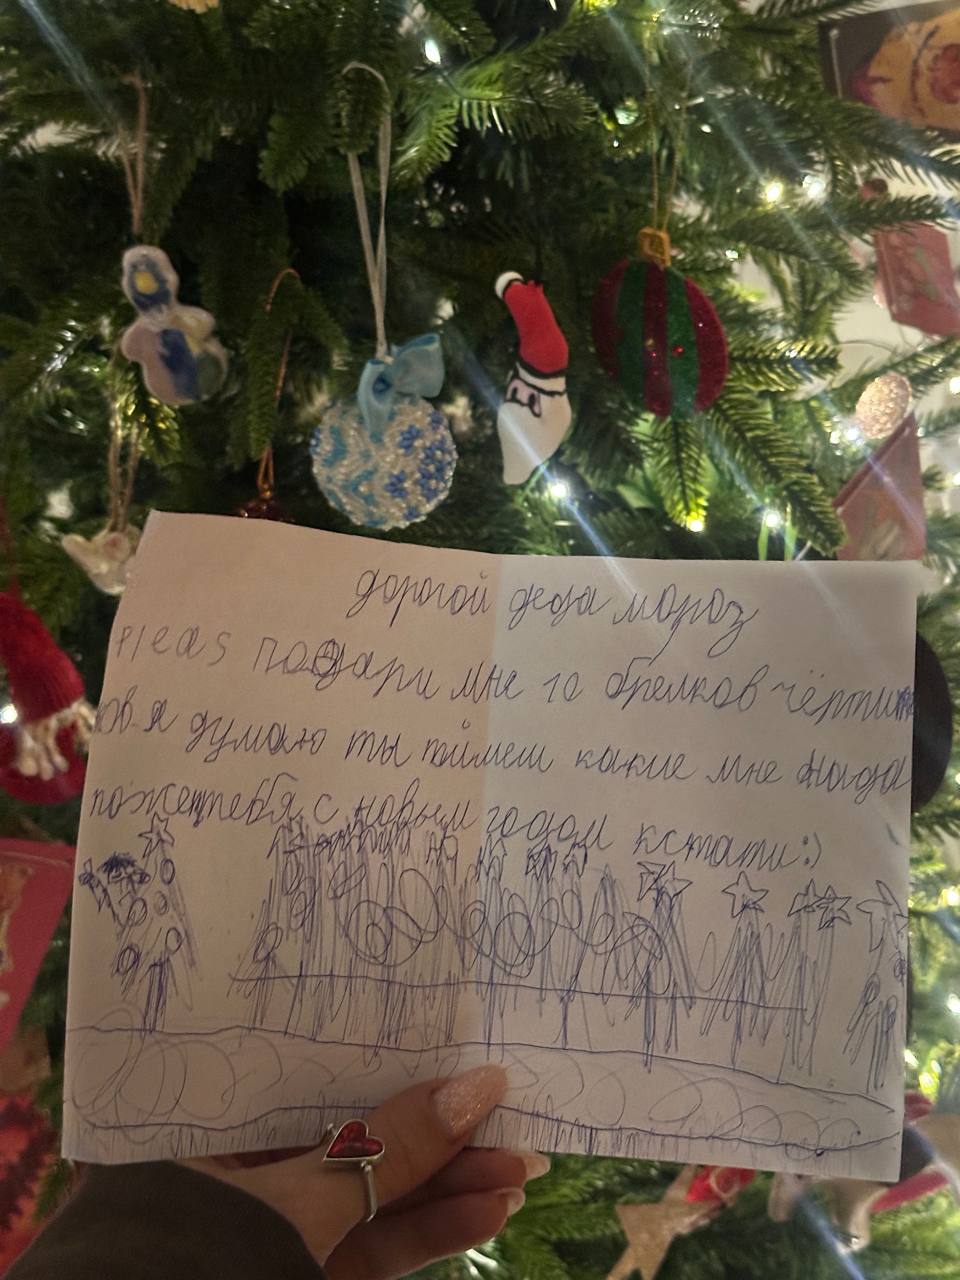 дорогой деда мороз
Pleas подари мне 10 брелков чёрти
ов я думаю ты поймеш какие мне нада
тебя с новым годом кстати:)